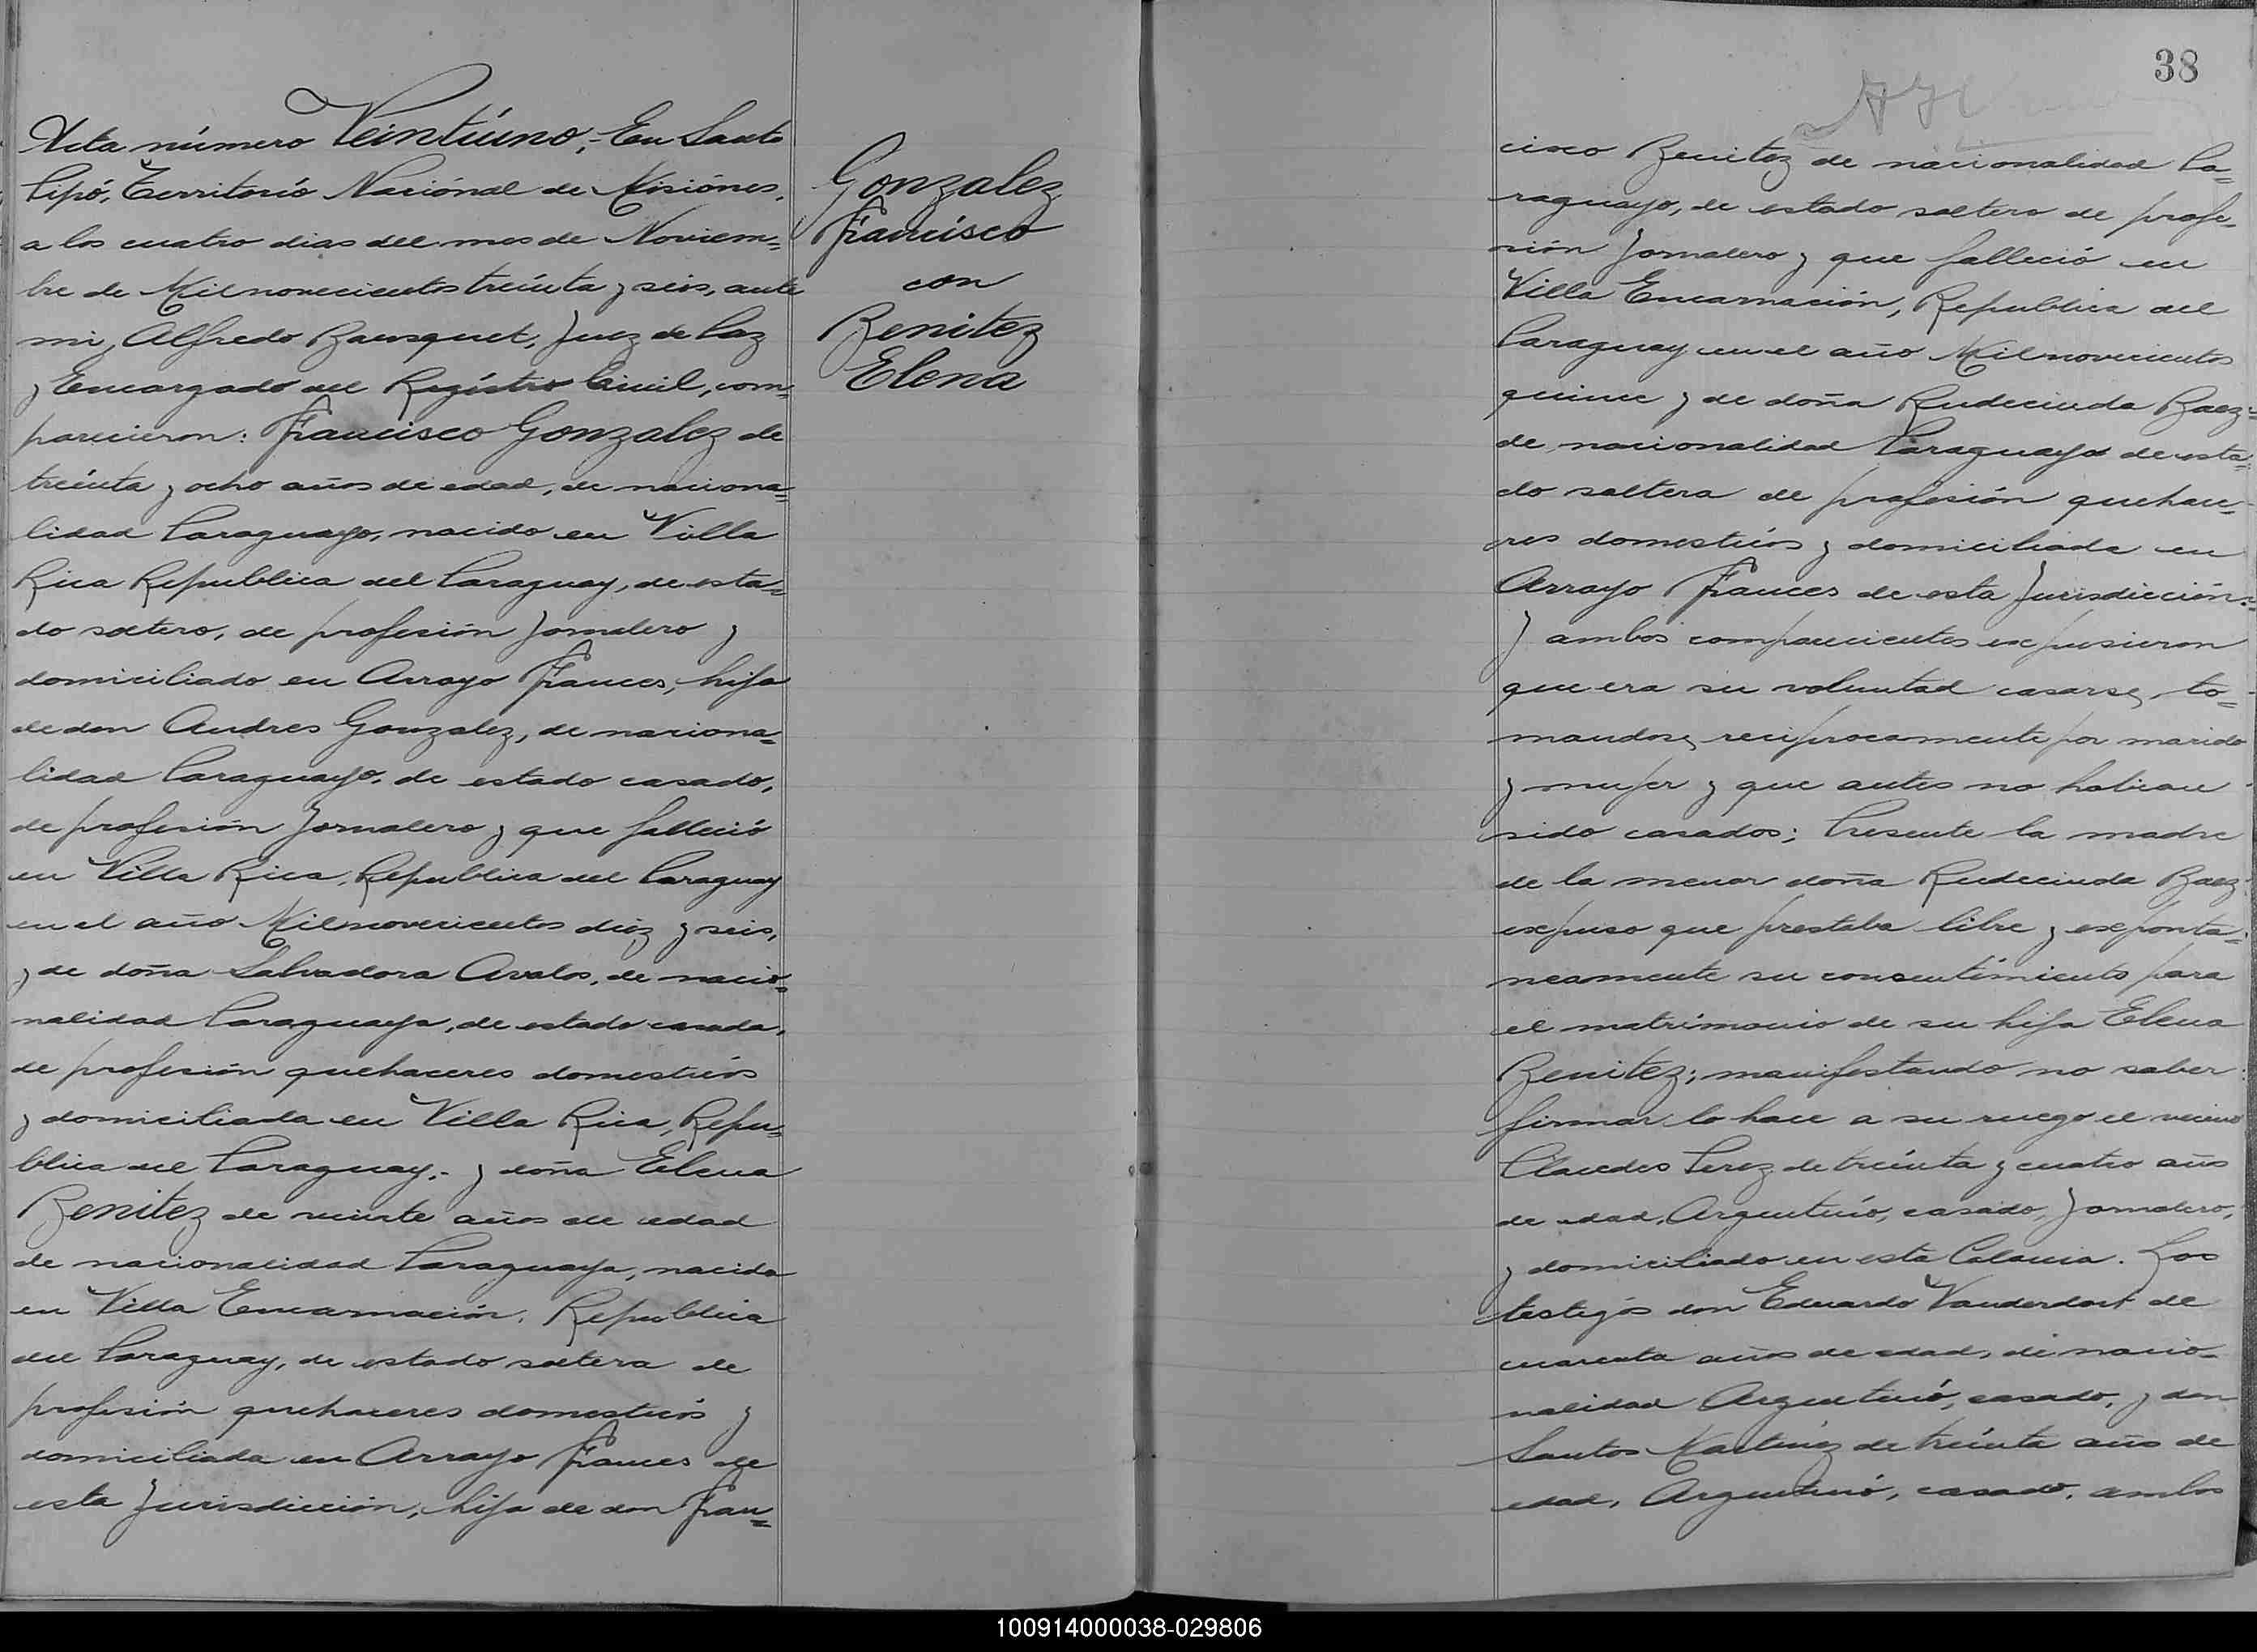 Acta número Veintiúno,- En Santo
Pipó, Territorio Naciónal de Misiónes,
a los cuatro dias del mes de Noviem=
bre de Mil novecientos treinta y seis, ante
mi, Alfredo Bausquet, Juez de Paz
y Encargado del Registro Civil, com=
parecieron: Francisco Gonzalez de
treinta y ocho años de edad, de naciona=
lidad Paraguayo, nacido en Villa
Rica Republica del Paraguay, de esta=
do soltero, de profesión Jornalero y
domiciliado en Arroyo Frances, hijo
de don Andres Gonzalez, de naciona=
lidad Paraguayo, de estado casado,
de profesión Jornalero y que falleció
en Villa Rica, Republica del Paraguay
en el año Mil novecientos diez y seis,
y de doña Salvadora Avalos, de nacio=
nalidad Paraguaya, de estado casada,
de profesión quehaceres domesticos
y domiciliada en Villa Rica, Repu=
blica del Paraguay.- y doña Elena
Benitez de veinte años de edad
de nacionalidad Paraguaya, nacida
en Villa Encarnación, Republica
del Paraguay, de estado soltera de
profesión quehaceres domesticos y
domiciliada en Arroyo Frances de
esta Jurisdicción, hija de don Fran=
Gonzalez
Francisco
con
Benitez
Elena
38
cisco Benitez de nacionalidad Pa=
raguayo, de estado soltero de profe=
sión Jornalero y que falleció en
Villa Encarnación, Republica del
Paraguay en el año Mil novecientos
quince y de doña Rudecinda Baez=
de nacionalidad Paraguaya de esta=
do soltera de profesión quehace=
res domesticos y domiciliada en
Arroyo Frances de esta Jurisdicción.=
y ambos comparecientes expusieron
que era su voluntad casarse, to=
mandose reciprocamente por marido
y mujer y que antes no habian
sido casados; Presente la madre
de la menor doña Rudecinda Baez
expuso que prestaba libre y exponta=
neamente su consentimiento para
el matrimonio de su hija Elena
Benitez; manifestando no saber
firmar lo hace a su ruego el vecino
Perez de treinta y cuatro años
de edad, Argentino, casado, Jornalero,
y domiciliado en esta Colonia. Los
testigos don Eduardo Vanderdort de
cuarenta años de edad, de nacio=
nalidad Argentino, casado, y don
Santos Martinez de treinta años de
edad, Argentino, casado, ambos
100914000038-029806